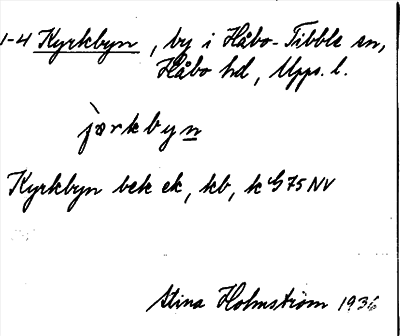 1-4 Kyrkbyn, by i Håbo-Tibble sn,
Håbo hd, Upps. l.
jærkbyn
Kyrkbyn bek ek, kb, k G 75 NV
Stina Holmström 1936